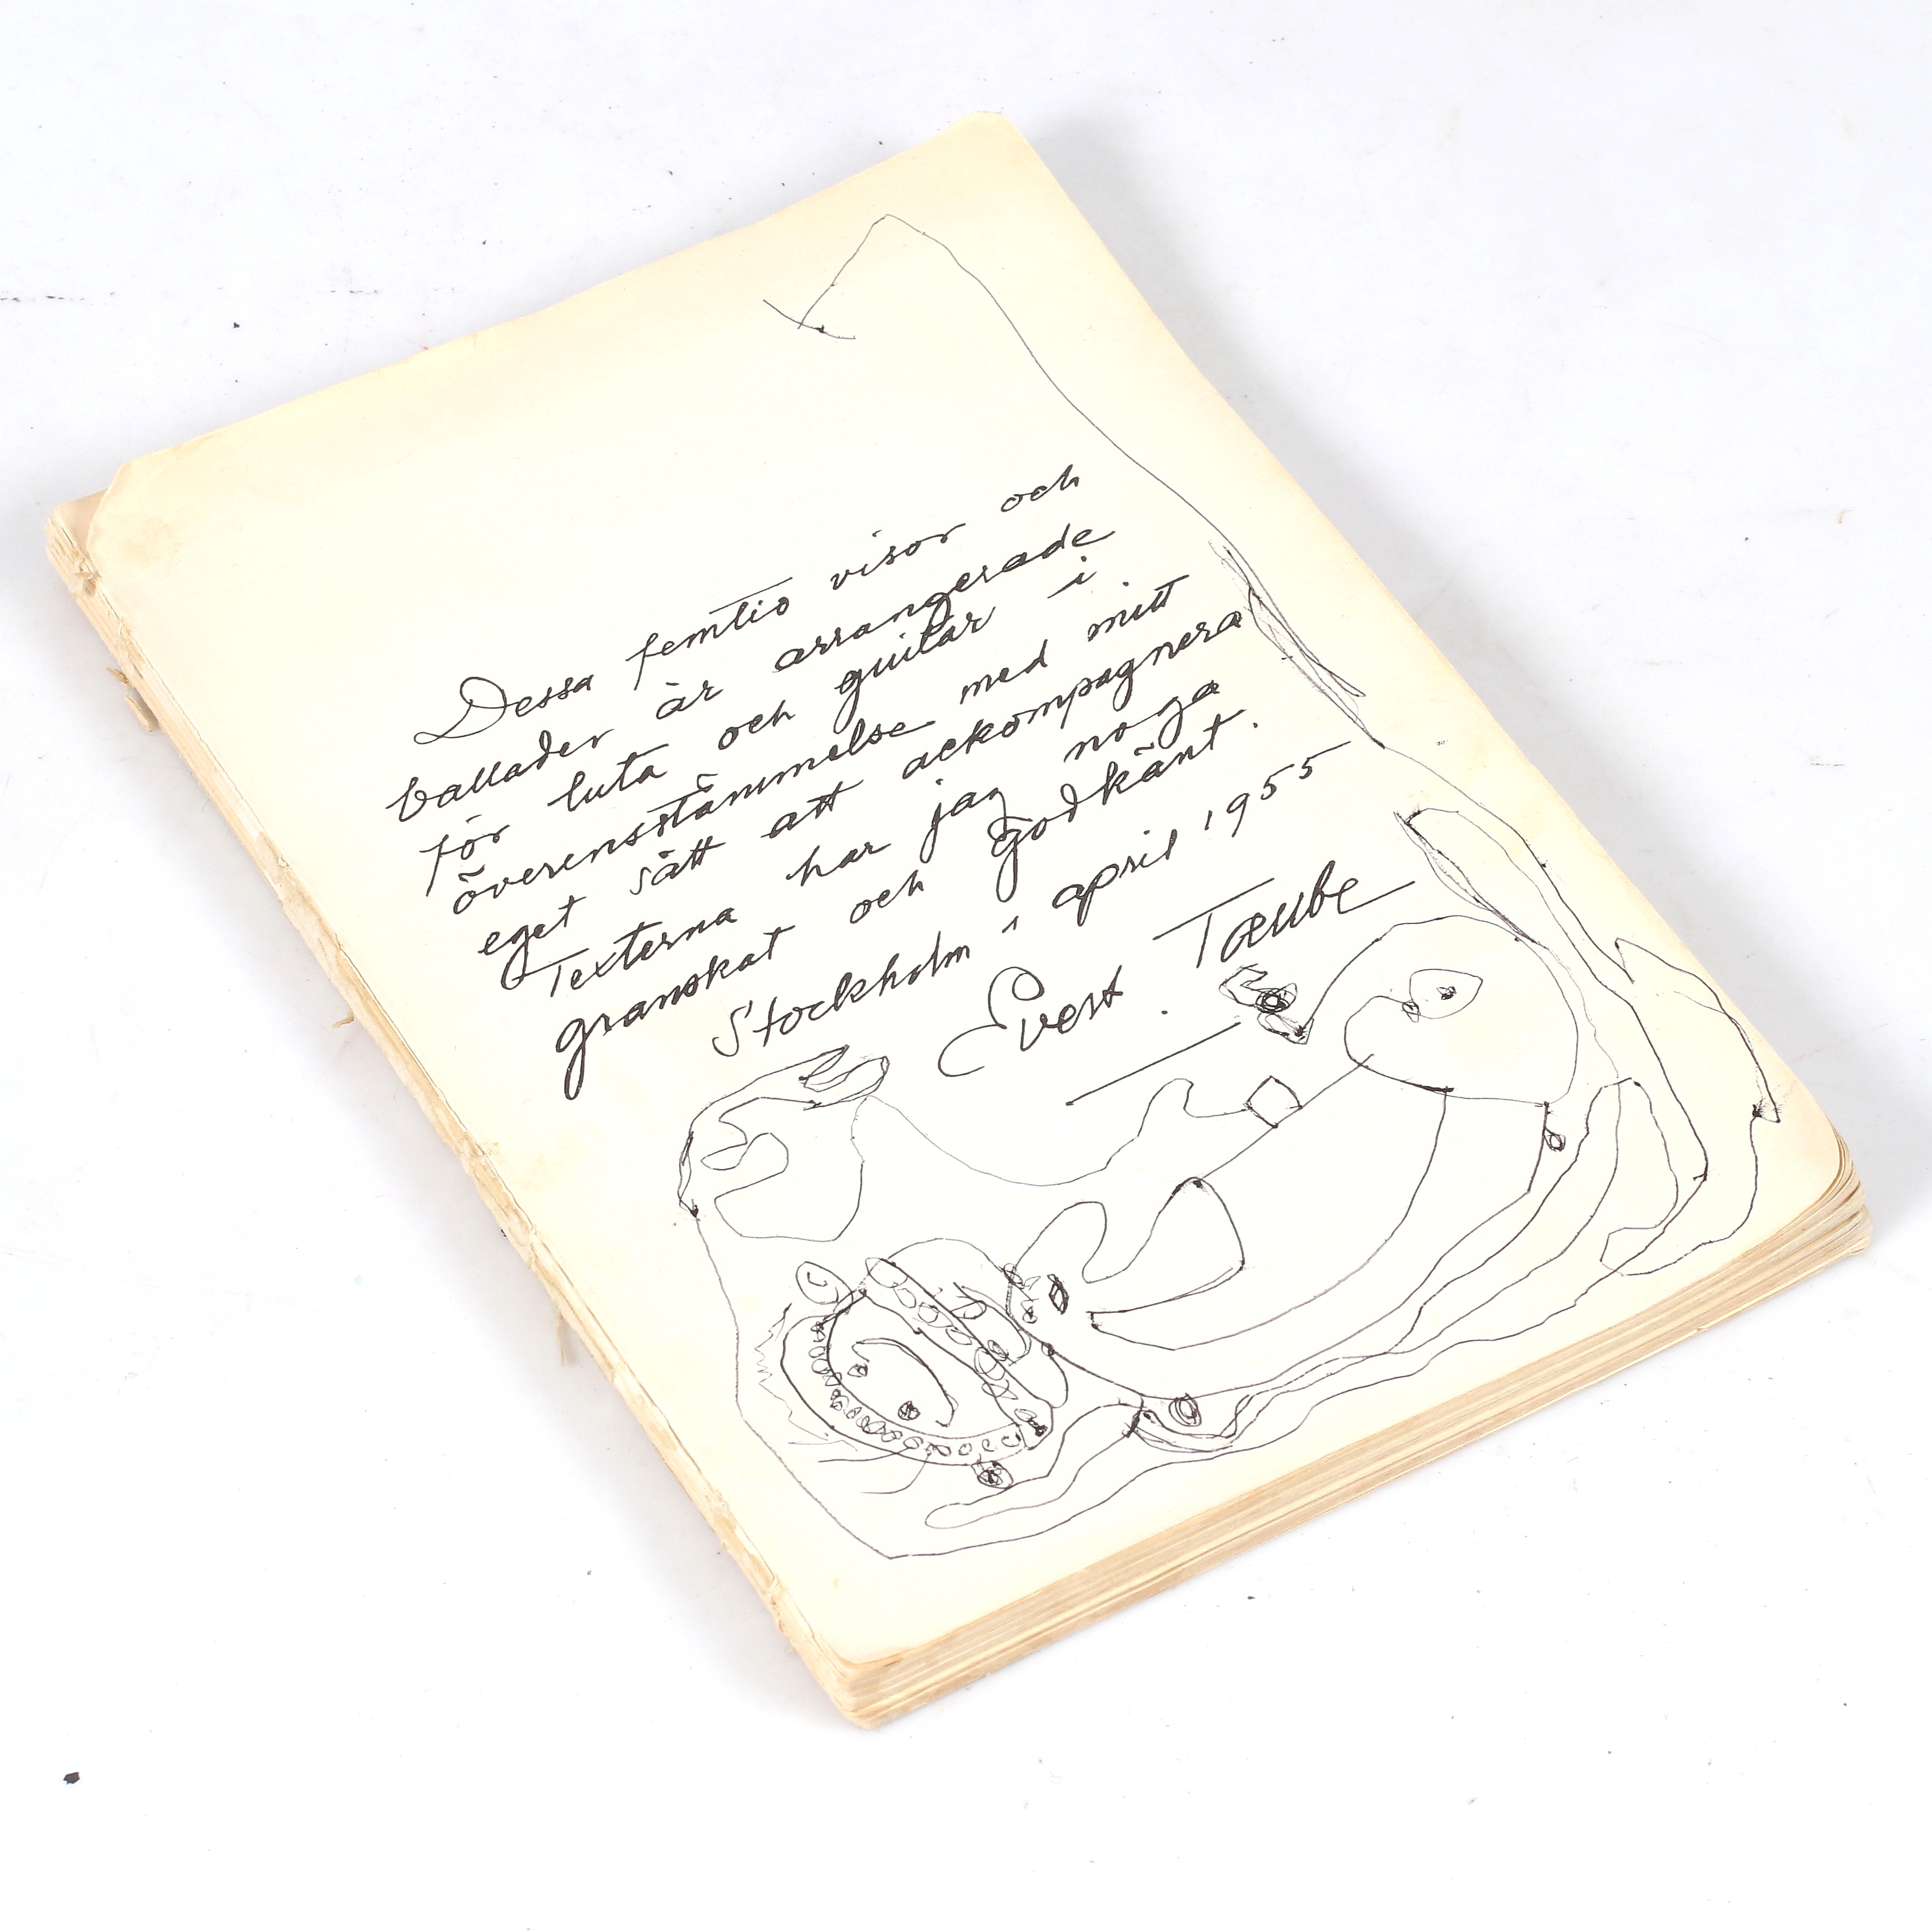 Dessa femtio visor och
ballader är arrangerade
för luta och guitar i
överensstämmelse med mitt
eget sätt att ackompagnera.
Texterna har jag noga
granskat och godkänt.
Stockholm i april 1955
Evert Taube